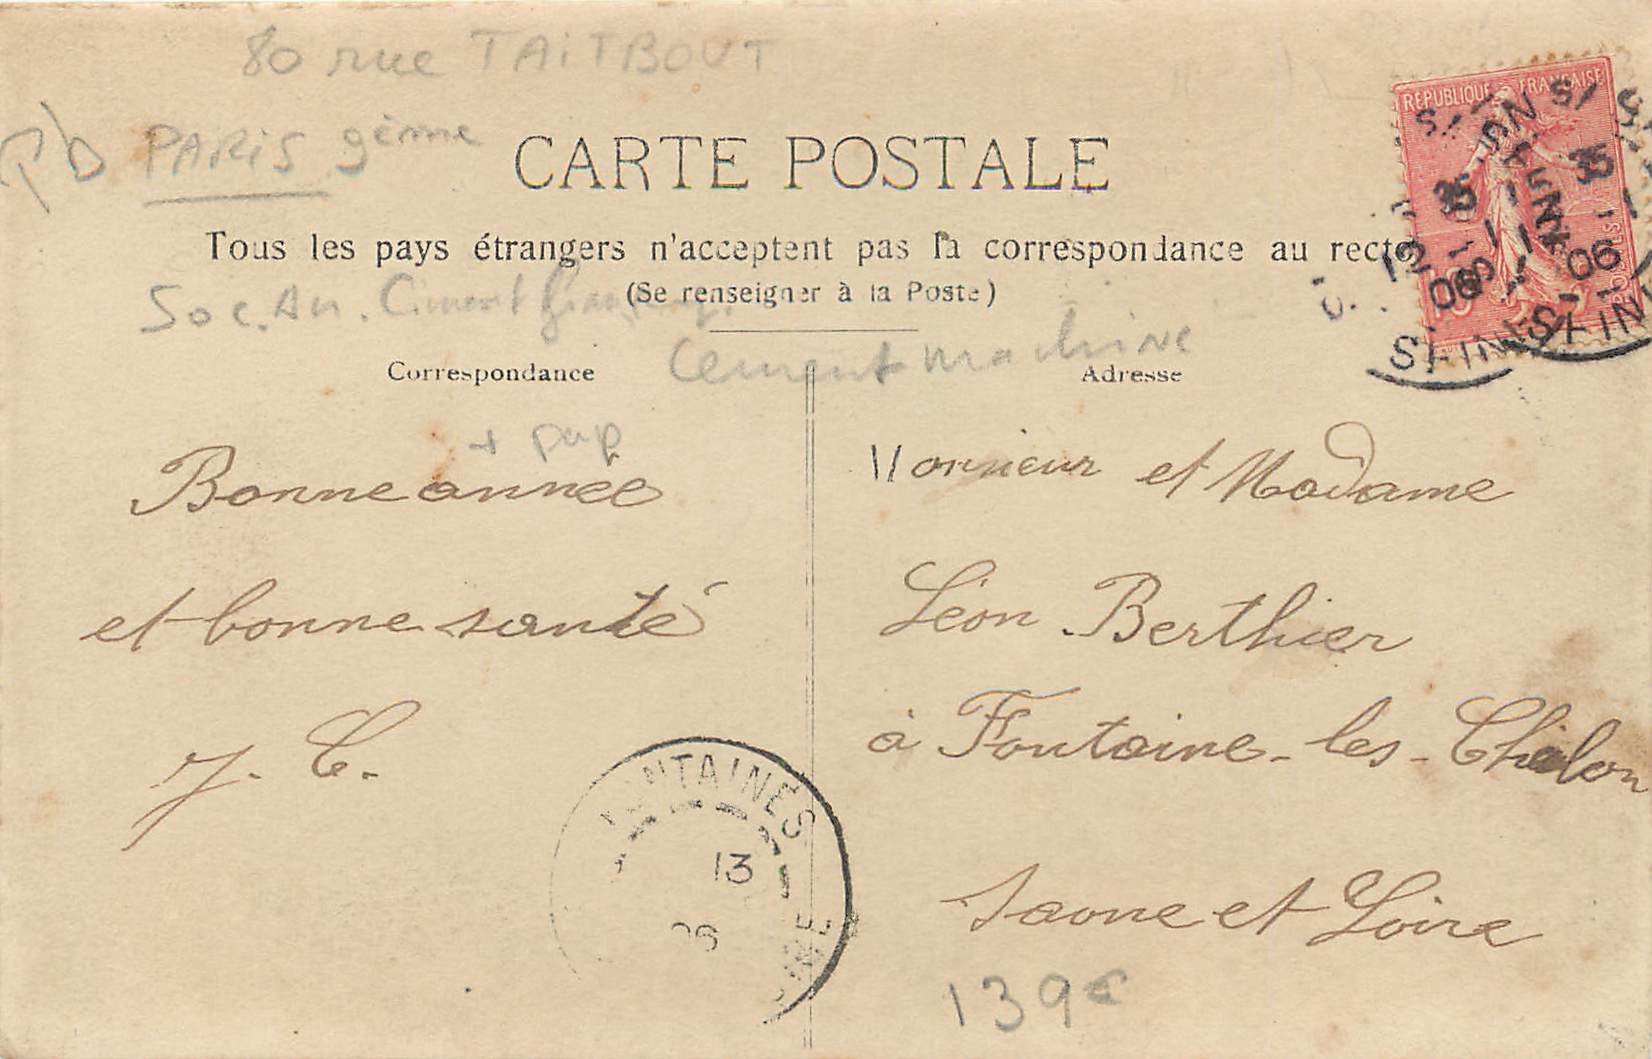 80 rue TAITBOUT
Pb PARIS 9ème
CARTE POSTALE
Tous les pays étrangers n'acceptent pas la correspondance au recto
(Se renseigner à la Poste)
Soc. An. Ciment français
Cement machine
Correspondance
Adresse
+ pap
Bonne année
et bonne santé
J. C.
Monsieur et Madame
Léon Berthier
à Fontaine-les-Chalon
Saone et Loire
139€
REPUBLIQUE FRANÇAISE
10
06
06
FONTAINES
13
06